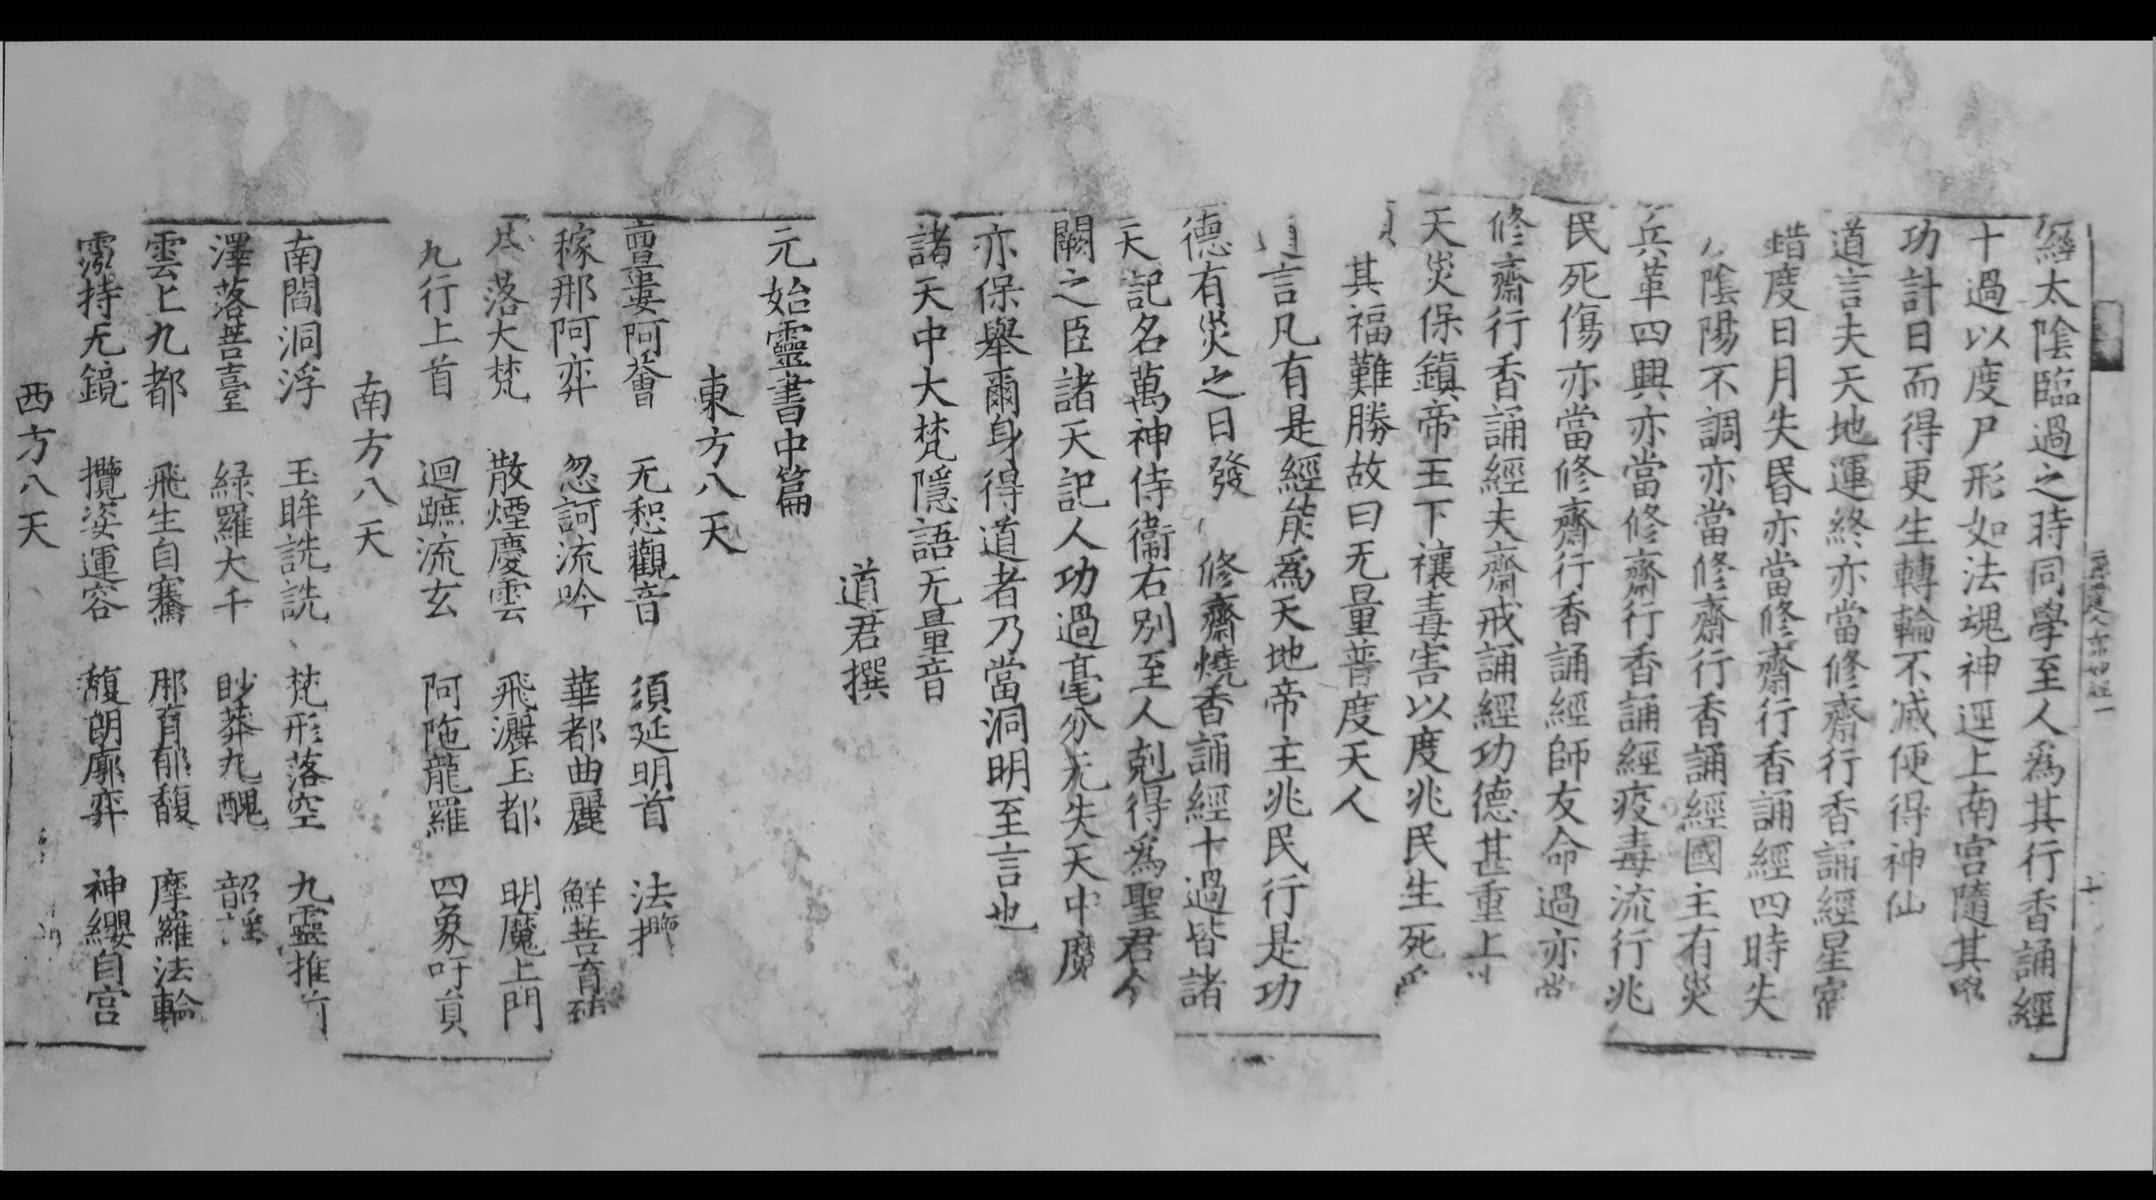 太陰臨過之時同學至人爲其行香誦經
十過以度尸形如法魂神逕上南宮隨其
功計日而得更生轉輪不滅便得神仙
道言夫天地運終亦當修齋行香誦經星宿
錯度日月失昬亦當修齋行香誦經四時失
陰陽不調亦當修齋行香誦經國主有災
兵革四興亦當修齋行香誦經疫毒流行兆
民死傷亦當修齋行香誦經師友命過亦當
修齋行香誦經夫齋戒誦經功德甚重上
天災保鎮帝王下禳毒害以度兆民生死
其福難勝故曰无量普度天人
道言凡有是經能爲天地帝主兆民行是功
德有災之日發 修齋燒香誦經十過皆諸
天記名萬神侍衞右別至人剋得爲聖君今
闕之臣諸天記人功過毫分无失天中魔
亦保舉爾身得道者乃當洞明至言也
諸天中大梵隱語无量音
道君撰
元始靈書中篇
東方八天
亶婁阿薈 无惒觀音 須延明首 法攬
稼那阿弈 忽訶流吟 華都曲麗 鮮菩育
落大梵 散煙慶雲 飛灑玉都 明魔上門
九行上首 迴蹠流玄 阿陁龍羅 四象吁員
南方八天
南閻洞浮 玉眸詵詵 梵形落空 九靈推前
澤落菩臺 緑羅大千 眇莽九醜 韶
雲上九都 飛生自騫 那育郁馥 摩羅法輪
霐持无鏡 攬姿運容 馥朗廓弈 神纓自宮
西方八天